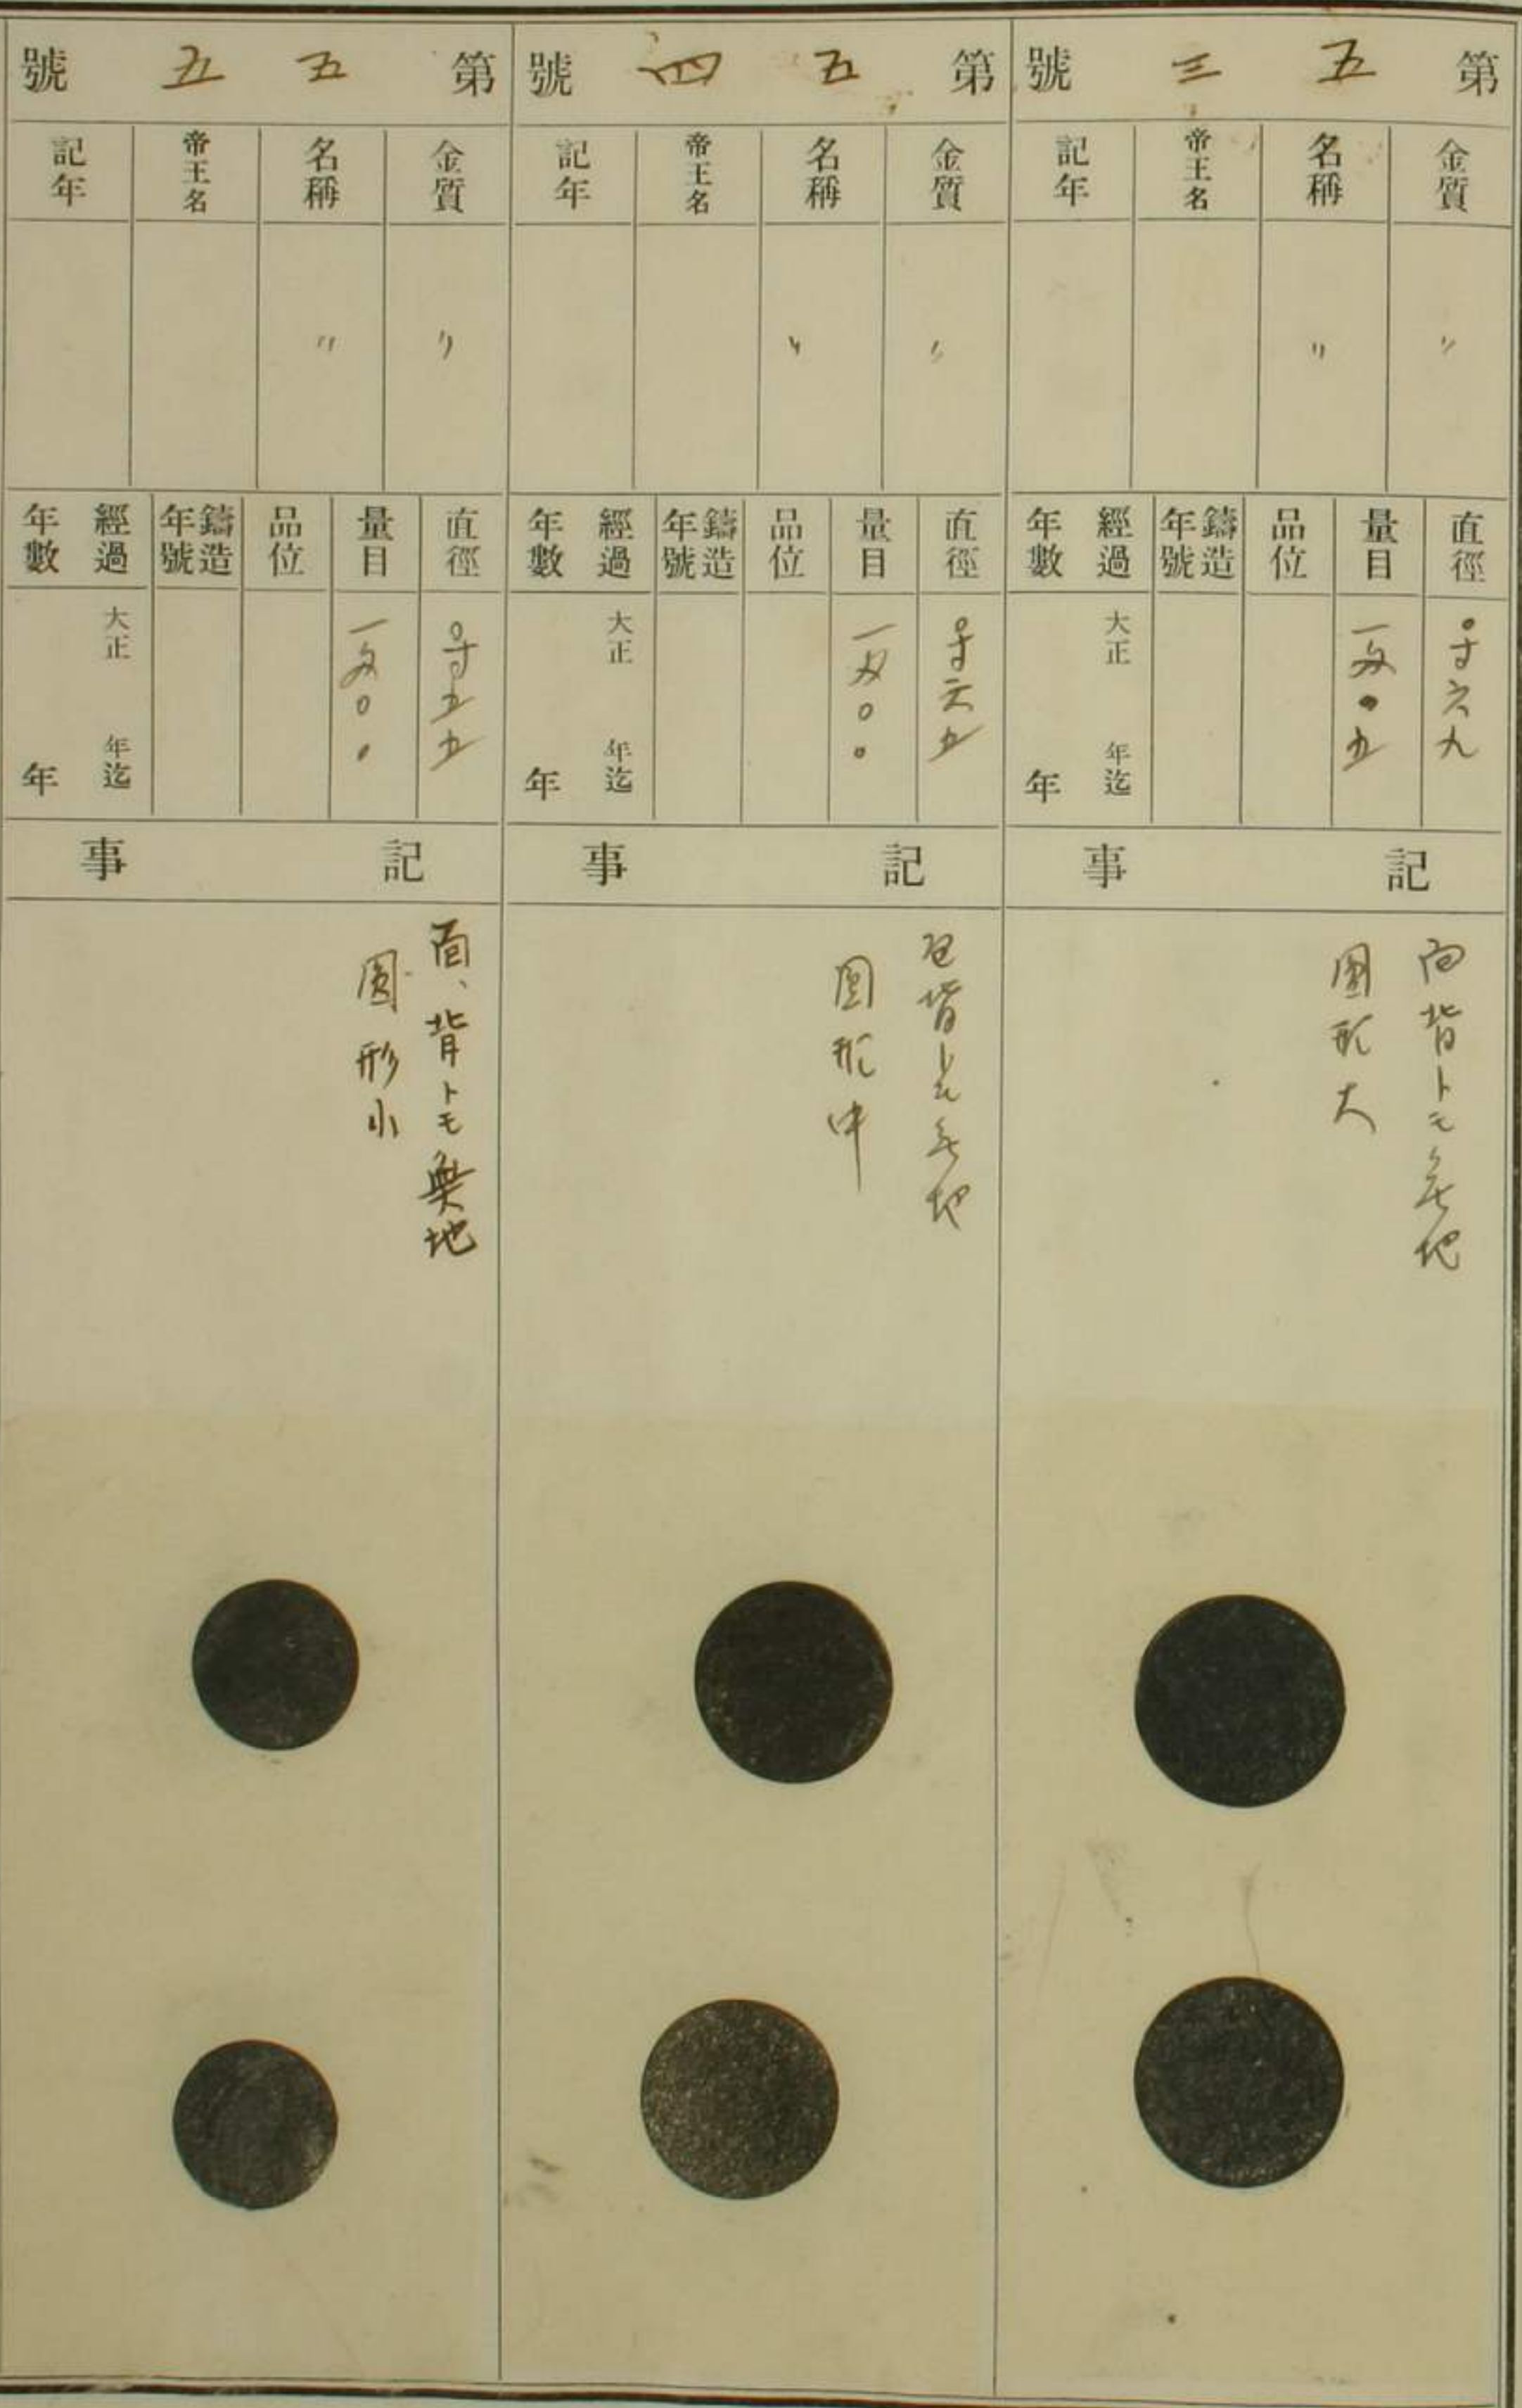 第五三號
金質
名稱
帝王名
記年
〃
〃
直徑
量目
品位
鑄造年號
經過年數
〇寸六九
一匁〇五
大正 年迄
年
記事
面背トモ無地
圓形大
第五四號
金質
名稱
帝王名
記年
〃
〃
直徑
量目
品位
鑄造年號
經過年數
〇寸六五
一匁〇〇
大正 年迄
年
記事
面背トモ無地
圓形中
第五五號
金質
名稱
帝王名
記年
〃
〃
直徑
量目
品位
鑄造年號
經過年數
〇寸五五
一匁〇〇
大正 年迄
年
記事
面、背トモ無地
圓形小